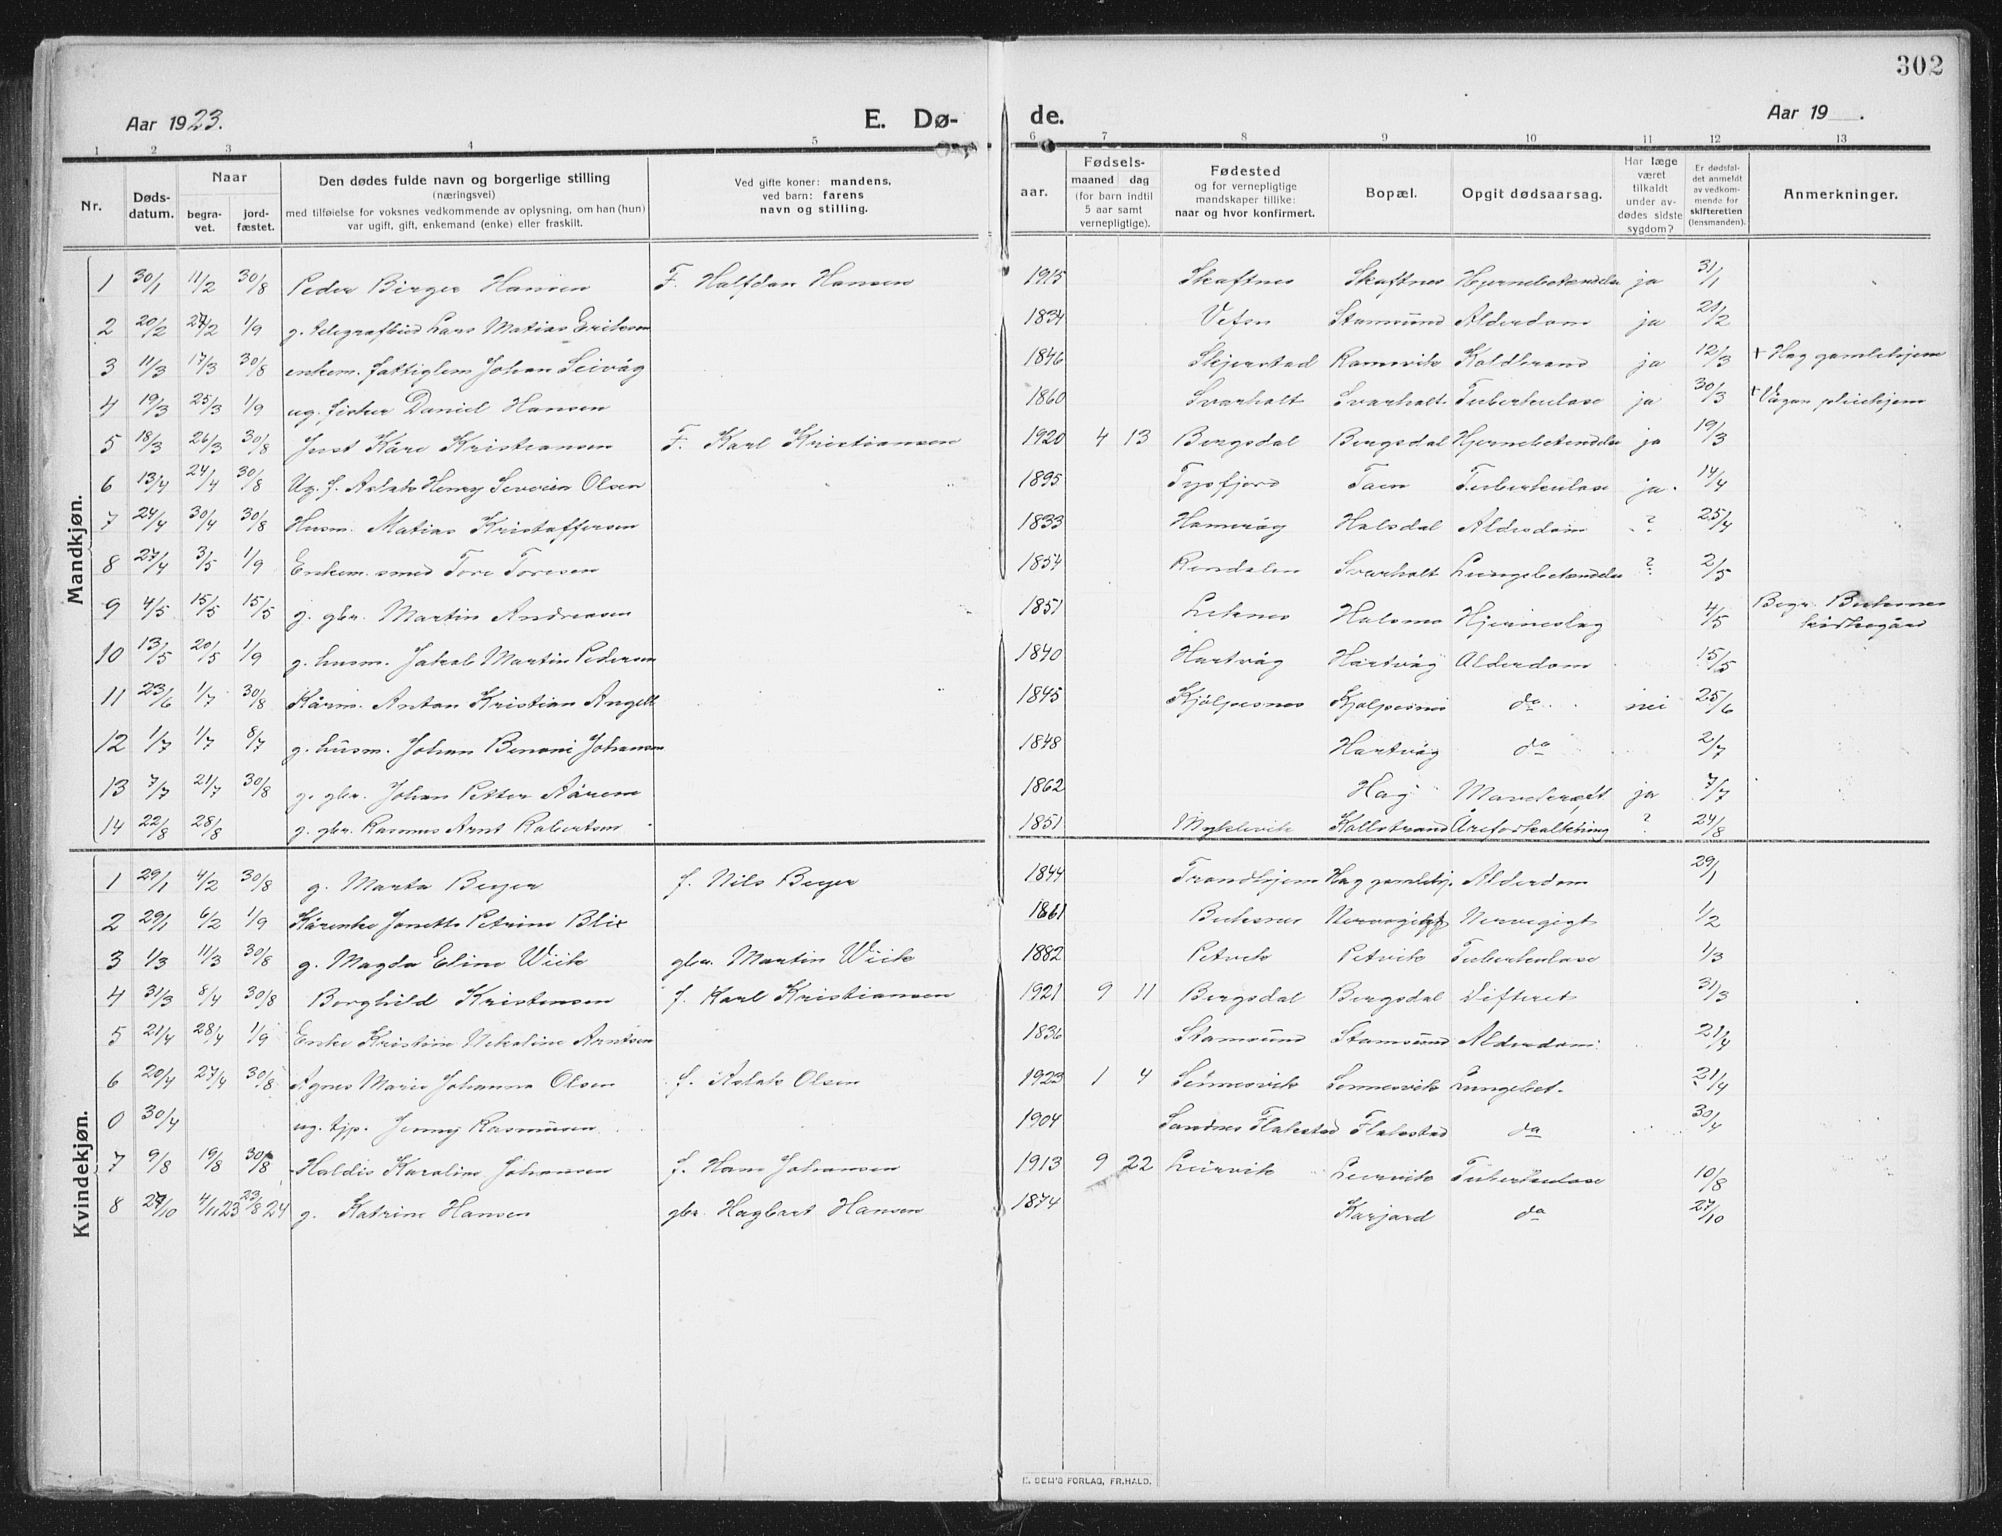 302
Aar 1923.
E. Dø-
de.
Aar 19 .
1 2 3 4 5 6 7 8 9 10 11 12 13
Nr.
Døds-
datum.
Naar
begra-
vet.
jord-
fæstet.
Den dødes fulde navn og borgerlige stilling
(næringsvei)
med tilføielse for voksnes vedkommende av oplysning, om han (hun)
var ugift, gift, enkemand (enke) eller fraskilt.
Ved gifte koner: mandens,
ved barn: farens
navn og stilling.
aar.
Fødsels-
maaned dag
(for barn indtil
5 aar samt
vernepligtige).
Fødested
og for vernepligtige
mandskaper tillike:
naar og hvor konfirmert.
Bopæl.
Opgit dødsaarsag.
Har læge
været
tilkaldt
under av-
dødes sidste
sygdom?
Er dødsfal-
det anmeldt
av vedkom-
mende for
skifteretten
(lensmanden).
Anmerkninger.
Mandkjøn.
1 30/1 11/2 30/8 Peder Birger Hansen F. Halfdan Hansen 1915 Skaftnes Skaftnes Hjernebetændelse ja 31/1
2 20/2 27/2 1/9 g. telegrafbud Lars Matias Eriksen 1834 Vefsn Stamsund Alderdom ja 21/2
3 11/3 17/3 30/8 enkem. fattiglem Johan Seivåg 1846 Skjerstad Ramsvik Koldbrand ja 12/3 + Hag gamlehjem
4 19/3 25/3 1/9 ug. fisker Daniel Hansen 1860 Svarholt Svarholt Tuberkulose ja 30/3 + Vågan pleiehjem
5 18/3 26/3 30/8 Just Kåre Kristiansen F. Karl Kristiansen 1920 4 13 Bergsdal Bergsdal Hjernebetændelse ja 19/3
6 13/4 24/4 30/8 Ug. f. Aslak Henry Severin Olsen 1895 Tysfjord Taen Tuberkulose ja. 14/4
7 24/4 30/4 30/8 Husm. Matias Kristoffersen 1833 Hamerøy Halsdal Alderdom ? 25/4
8 27/4 3/5 1/9 Enkem. smed Tore Toresen 1854 Rendalen Svarholt Lungebetændelse ? 2/5
9 4/5 15/5 15/5 g. gbr. Martin Andreasen 1851 Leknes Holsmo Hjerneslag 4/5 Begr. Buksnes
kirkegård
10 13/5 20/5 1/9 g. husm. Jakob Martin Pedersen 1840 Hartvåg Hartvåg Alderdom 15/5
11 23/6 1/7 30/8 Kårm. Anton Kristian Angell 1845 Kjølpesnes Kjølpesnes do nei 25/6
12 1/7 1/7 8/7 g. husm. Johan Benoni Johansen 1848 Hartvåg do 2/7
13 7/7 21/7 30/8 g. gbr. Johan Petter Aårem 1862 Hag ja 7/7
14 22/8 28/8 g. gbr. Rasmus Arnt Robertsen 1851 Myklevik Kollstrand Åreforkalkning ? 24/8
Kvindekjøn.
1 29/1 4/2 30/8 g. Marta Beyer f. Nils Beyer 1844 Trondhjem Hag gamlehj. Alderdom 29/1
2 29/1 6/2 1/9 Kårenke Janette Petrine Blix 1861 Buksnes Nervegigt 1/2
3 1/3 11/3 30/8 g. Magda Eline Wiik gbr. Martin Wiik 1882 Petvik Petvik Tuberkulose 1/3
4 31/3 8/4 30/8 Borghild Kristensen f. Karl Kristiansen 1921 9 11 Bergsdal Bergsdal Difteret 31/3
5 21/4 28/4 1/9 Enke Kristine Nikoline Arntsen 1836 Stamsund Stamsund Alderdom 21/4
6 20/4 27/4 30/8 Agnes Marie Johanna Olsen f. Aslak Olsen 1923 1 4 Sennesvik Sennesvik Lungebet. 21/4
0 30/4 ug. tjp. Jenny Rasmusen 1904 Sandnes Flakstad Flakstad do 30/4
7 9/8 19/8 30/8 Haldis Karoline Johansen f. Hans Johansen 1913 9 22 Leirvik Leirvik Tuberkulose 10/8
8 27/10 4/11 23 23/8 24 g. Katrine Hansen gbr. Hagbart Hansen 1874 Karjord do 27/10
E. SEM'S FORLAG, FR.HALD.